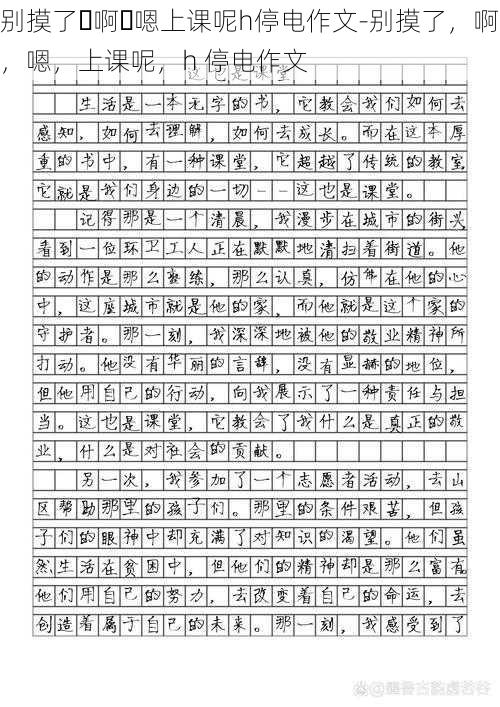 别摸了▯啊▯嗯上课呢h停电作文-别摸了，啊
，嗯，上课呢，h 停电作文
这也是课堂
生活是一本无字的书，它教会我们如何去
感知，如何去理解，如何去成长。而在这本厚
重的书中，有一种课堂，它超越了传统的教室，
它就是我们身边的一切--这也是课堂。
记得那是一个清晨，我漫步在城市的街头，
看到一位环卫工人正在默默地清扫着街道。他
的动作是那么熟练，那么认真，仿佛在他的心
中，这座城市就是他的家，而他就是这个家的
守护者。那一刻，我深深地被他的敬业精神所
打动。他没有华丽的言辞，没有显赫的地位，
但他用自己的行动，向我展示了一种责任与担
当。这也是课堂，它教会了我什么是真正的敬
业，什么是对社会的贡献。
另一次，我参加了一个志愿者活动，去山
区帮助那里的孩子们。那里的条件艰苦，但孩
子们的眼神中却充满了对知识的渴望。他们虽
然生活在贫困中，但他们的精神却是那么富有。
他们用自己的努力，去改变着自己的命运，去
创造着属于自己的未来。那一刻，我感受到了